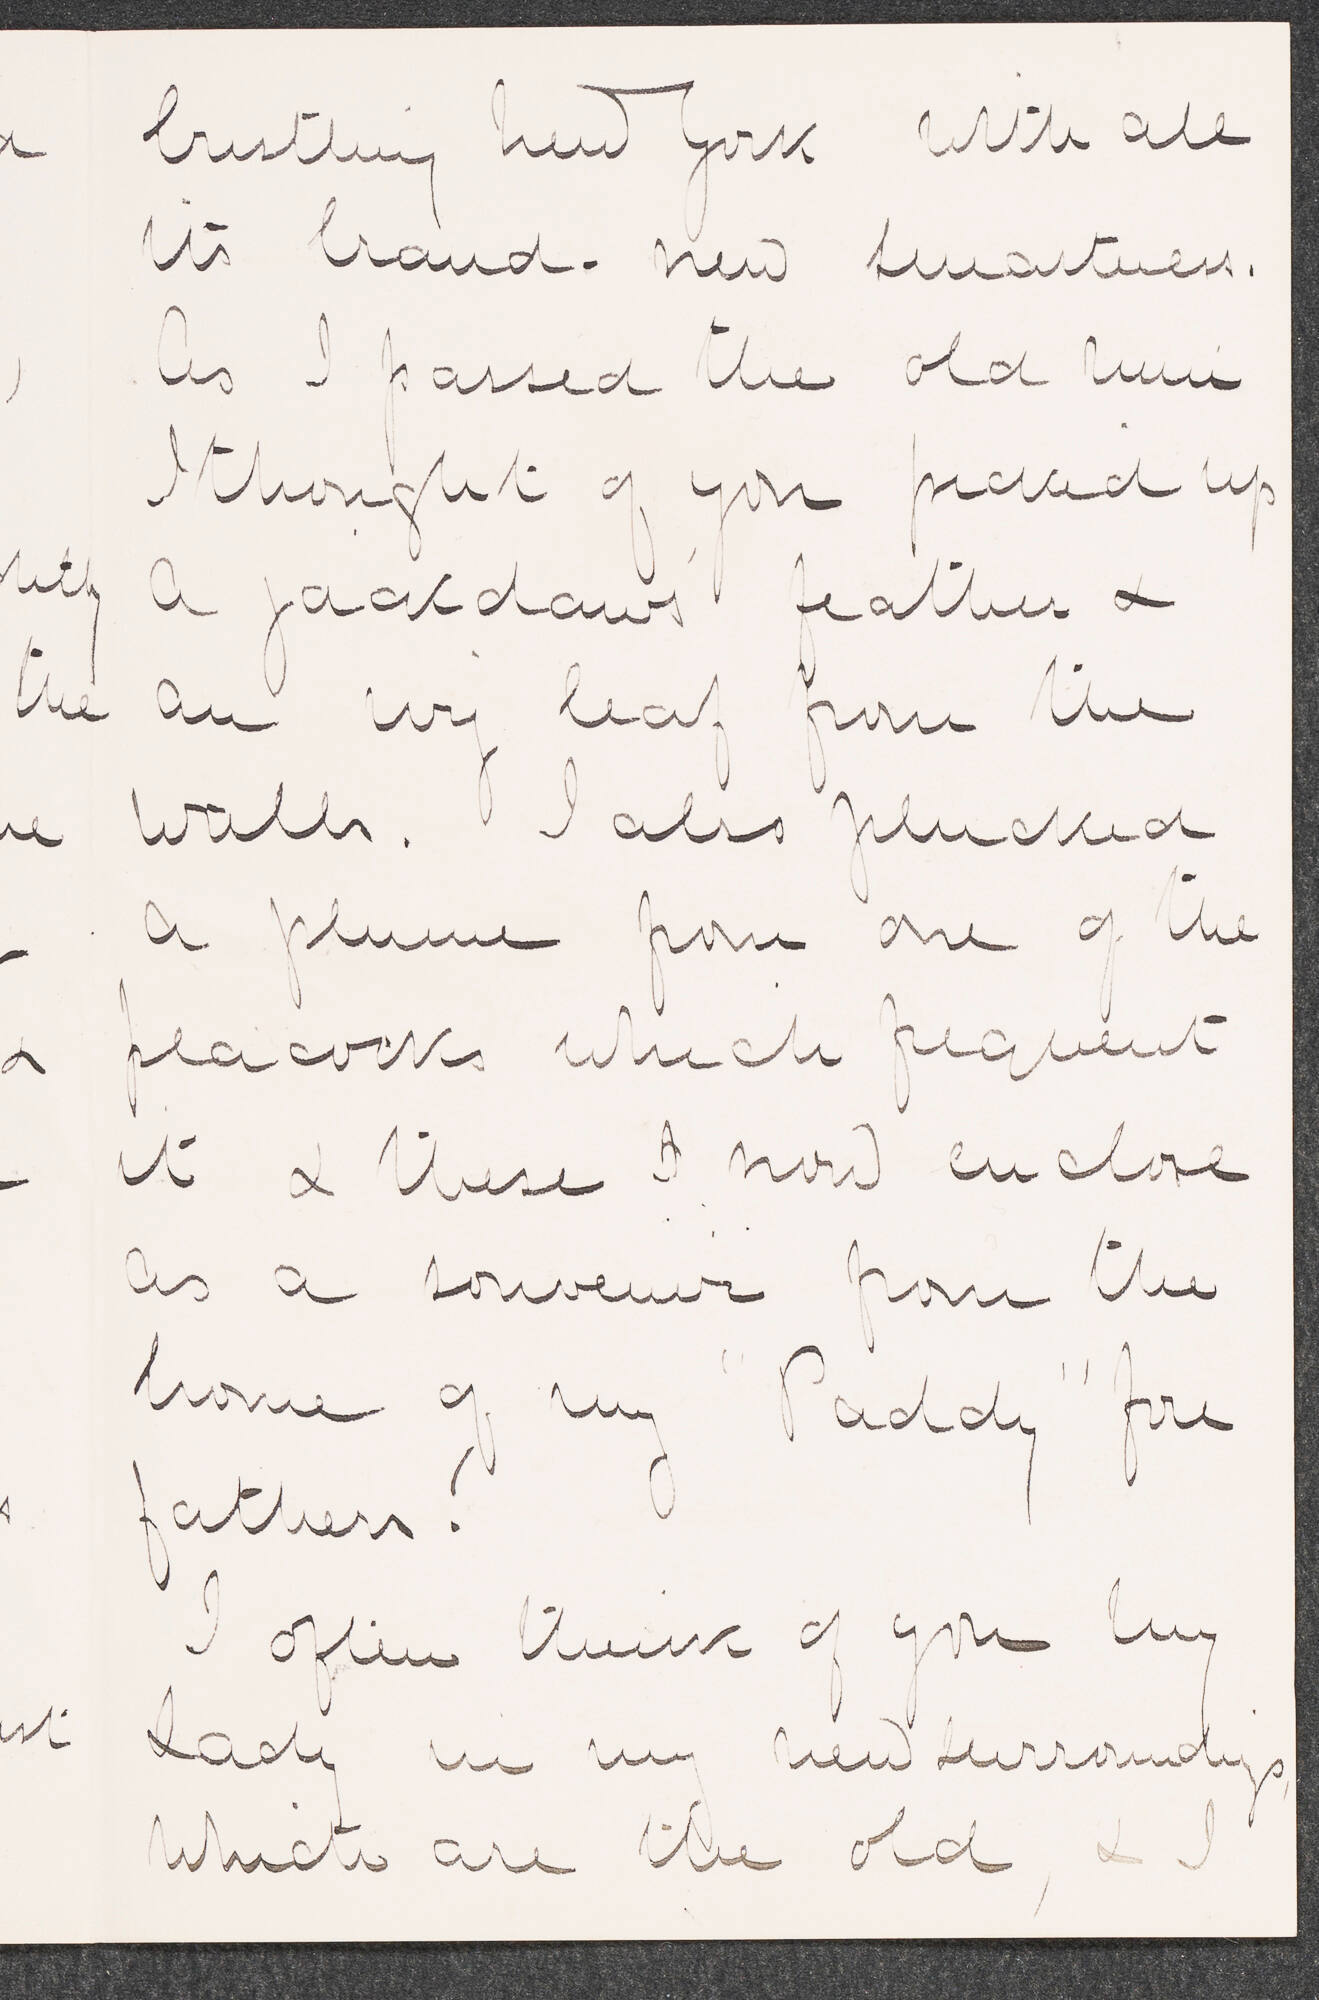 bustling New York with all
its brand-new smartness.
As I passed the old ruin
I thought of you picked up
a jackdaws' feather &
an ivy leaf from the
walls. I also plucked
a plume from one of the
peacocks which frequent
it & these I now enclose
as a souvenir from the
home of my "Paddy" fore
fathers!
I often think of you my
Lady in my new surroundings,
which are the old, & I
the
&